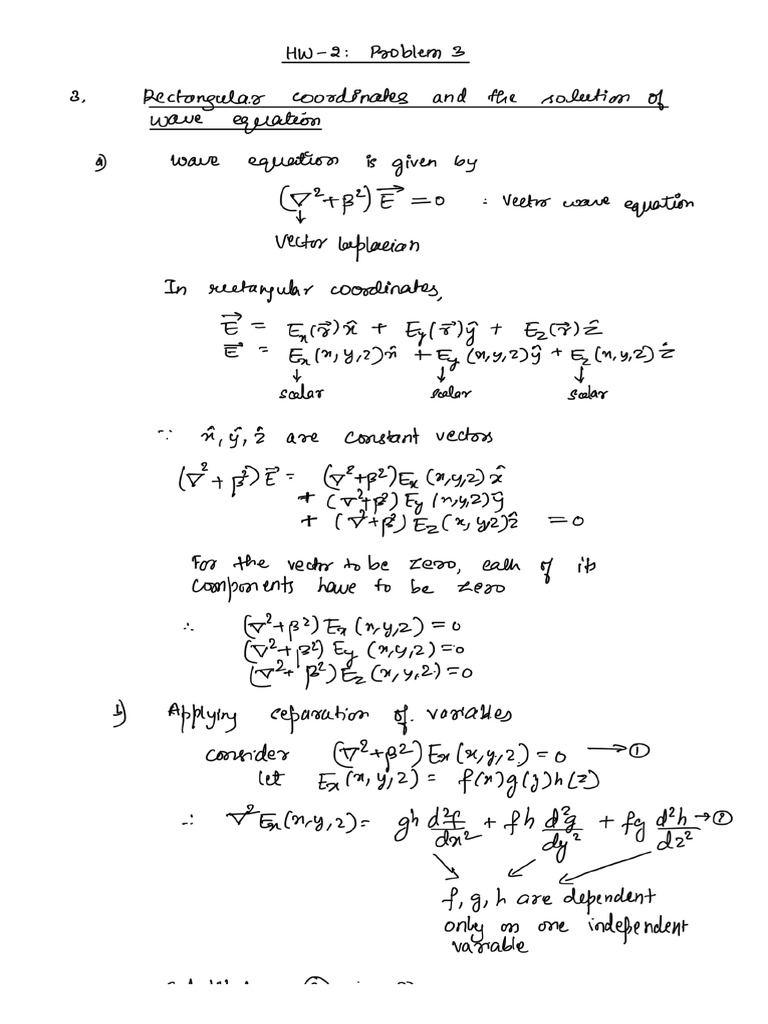 HW-2: Problem 3
3. Rectangular coordinates and the solution of
wave equation
a) wave equation is given by
(∇²+β²)E⃗ = 0 : Vector wave equation
↓
Vector laplacian
In rectangular coordinates,
E⃗ = Ex(r⃗)x̂ + Ey(r⃗)ŷ + Ez(r⃗)ẑ
E⃗ = Ex(x,y,z)x̂ + Ey(x,y,z)ŷ + Ez(x,y,z)ẑ
↓ ↓ ↓
scalar scalar scalar
∵ x̂, ŷ, ẑ are constant vectors
(∇²+β²)E⃗ = (∇²+β²)Ex(x,y,z)x̂
+ (∇²+β²)Ey(x,y,z)ŷ
+ (∇²+β²)Ez(x,y,z)ẑ = 0
For the vector to be zero, each of its
components have to be zero
∴ (∇²+β²)Ex(x,y,z)=0
(∇²+β²)Ey(x,y,z)=0
(∇²+β²)Ez(x,y,z)=0
b) Applying separation of variables
consider (∇²+β²)Ex(x,y,z)=0 → ①
let Ex(x,y,z) = f(x)g(y)h(z)
∴ ∇²Ex(x,y,z) = gh d²f/dx² + fh d²g/dy² + fg d²h/dz² → ②
f, g, h are dependent
only on one independent
variable